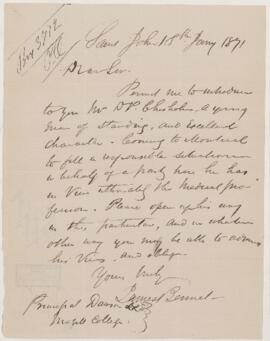 Saint John 18th Jany 1871
Dear Sir
Permit me to introduce
to you Mr D. P. Chisholm a young
man of standing, and Excellent
Character - Coming to Montreal
to fill a responsible situation
on behalf of a party here he has
in View attending the Medical pro-
fession. Please open up his way
in this particular, and in whatever
other way you may be able to advance
his Views. and oblige.
Yours truly
Bennet
Principal Dawson
McGill College